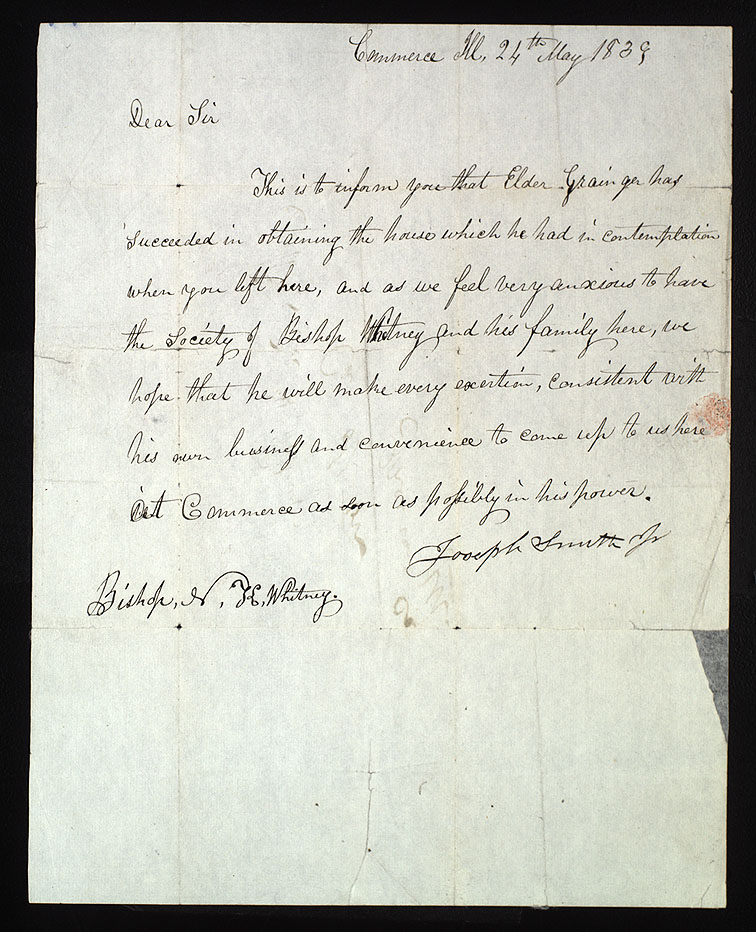 Commerce Ill, 24th May 1839
Dear Sir
This is to inform you that Elder Grainger has
succeeded in obtaining the house which he had in contemplation
when you left here, and as we feel very anxious to have
the society of Bishop Whitney and his family here, we
hope that he will make every exertion, consistent with
his own business and convenience to come up to us here
at Commerce as soon as possibly in his power.
Joseph Smith Jr
Bishop, N, K, Whitney.